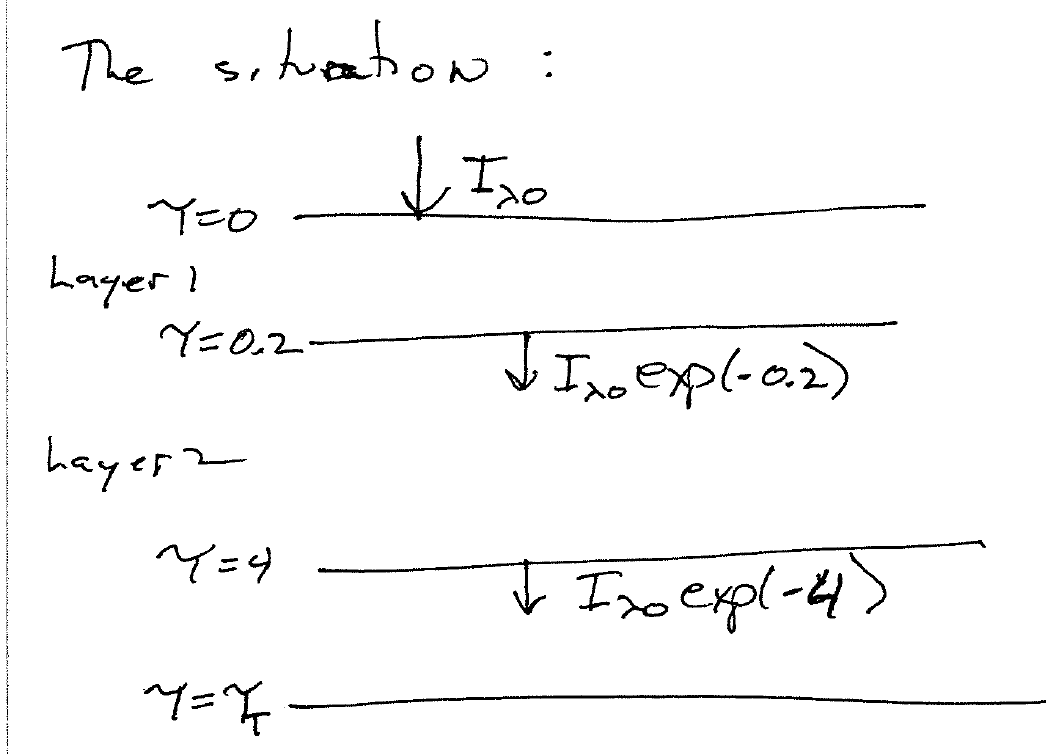 The situation :
I_λ0
τ=0
Layer 1
τ=0.2
I_λ0 exp(-0.2)
Layer 2
τ=4
I_λ0 exp(-4)
τ=τ_T